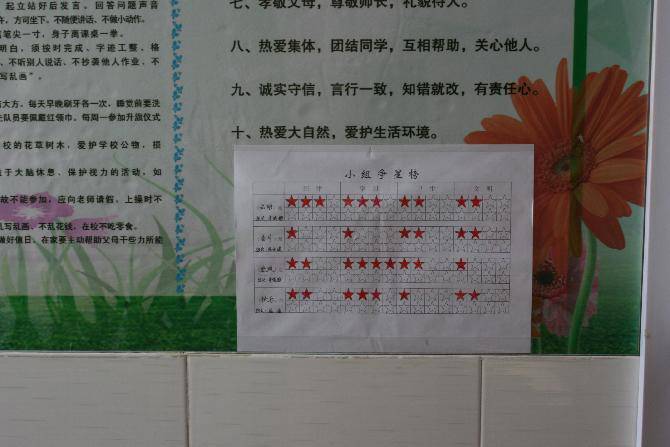 起立站好后发言。回答问题声音
方可坐下。不随便讲话、不做小动作。
笔尖一寸，身子离课桌一拳。
明白，须按时完成、字迹工整、格
、不听别人说话、不抄袭他人作业、不
写乱画”。
大方。每天早晚刷牙各一次，睡觉前要洗
队员要佩戴红领巾，每周一参加升旗仪式
校的花草树木，爱护学校公物，损
于大脑休息、保护视力的活动，如
故不能参加，应向老师请假，上操时不
乱写乱画、不乱花钱，在校不吃零食。
做好值日，在家要主动帮助父母干些力所能
七、孝敬父母，尊敬师长，礼貌待人。
八、热爱集体，团结同学，互相帮助，关心他人。
九、诚实守信，言行一致，知错就改，有责任心。
十、热爱大自然，爱护生活环境。
小组争星榜
学习 文明